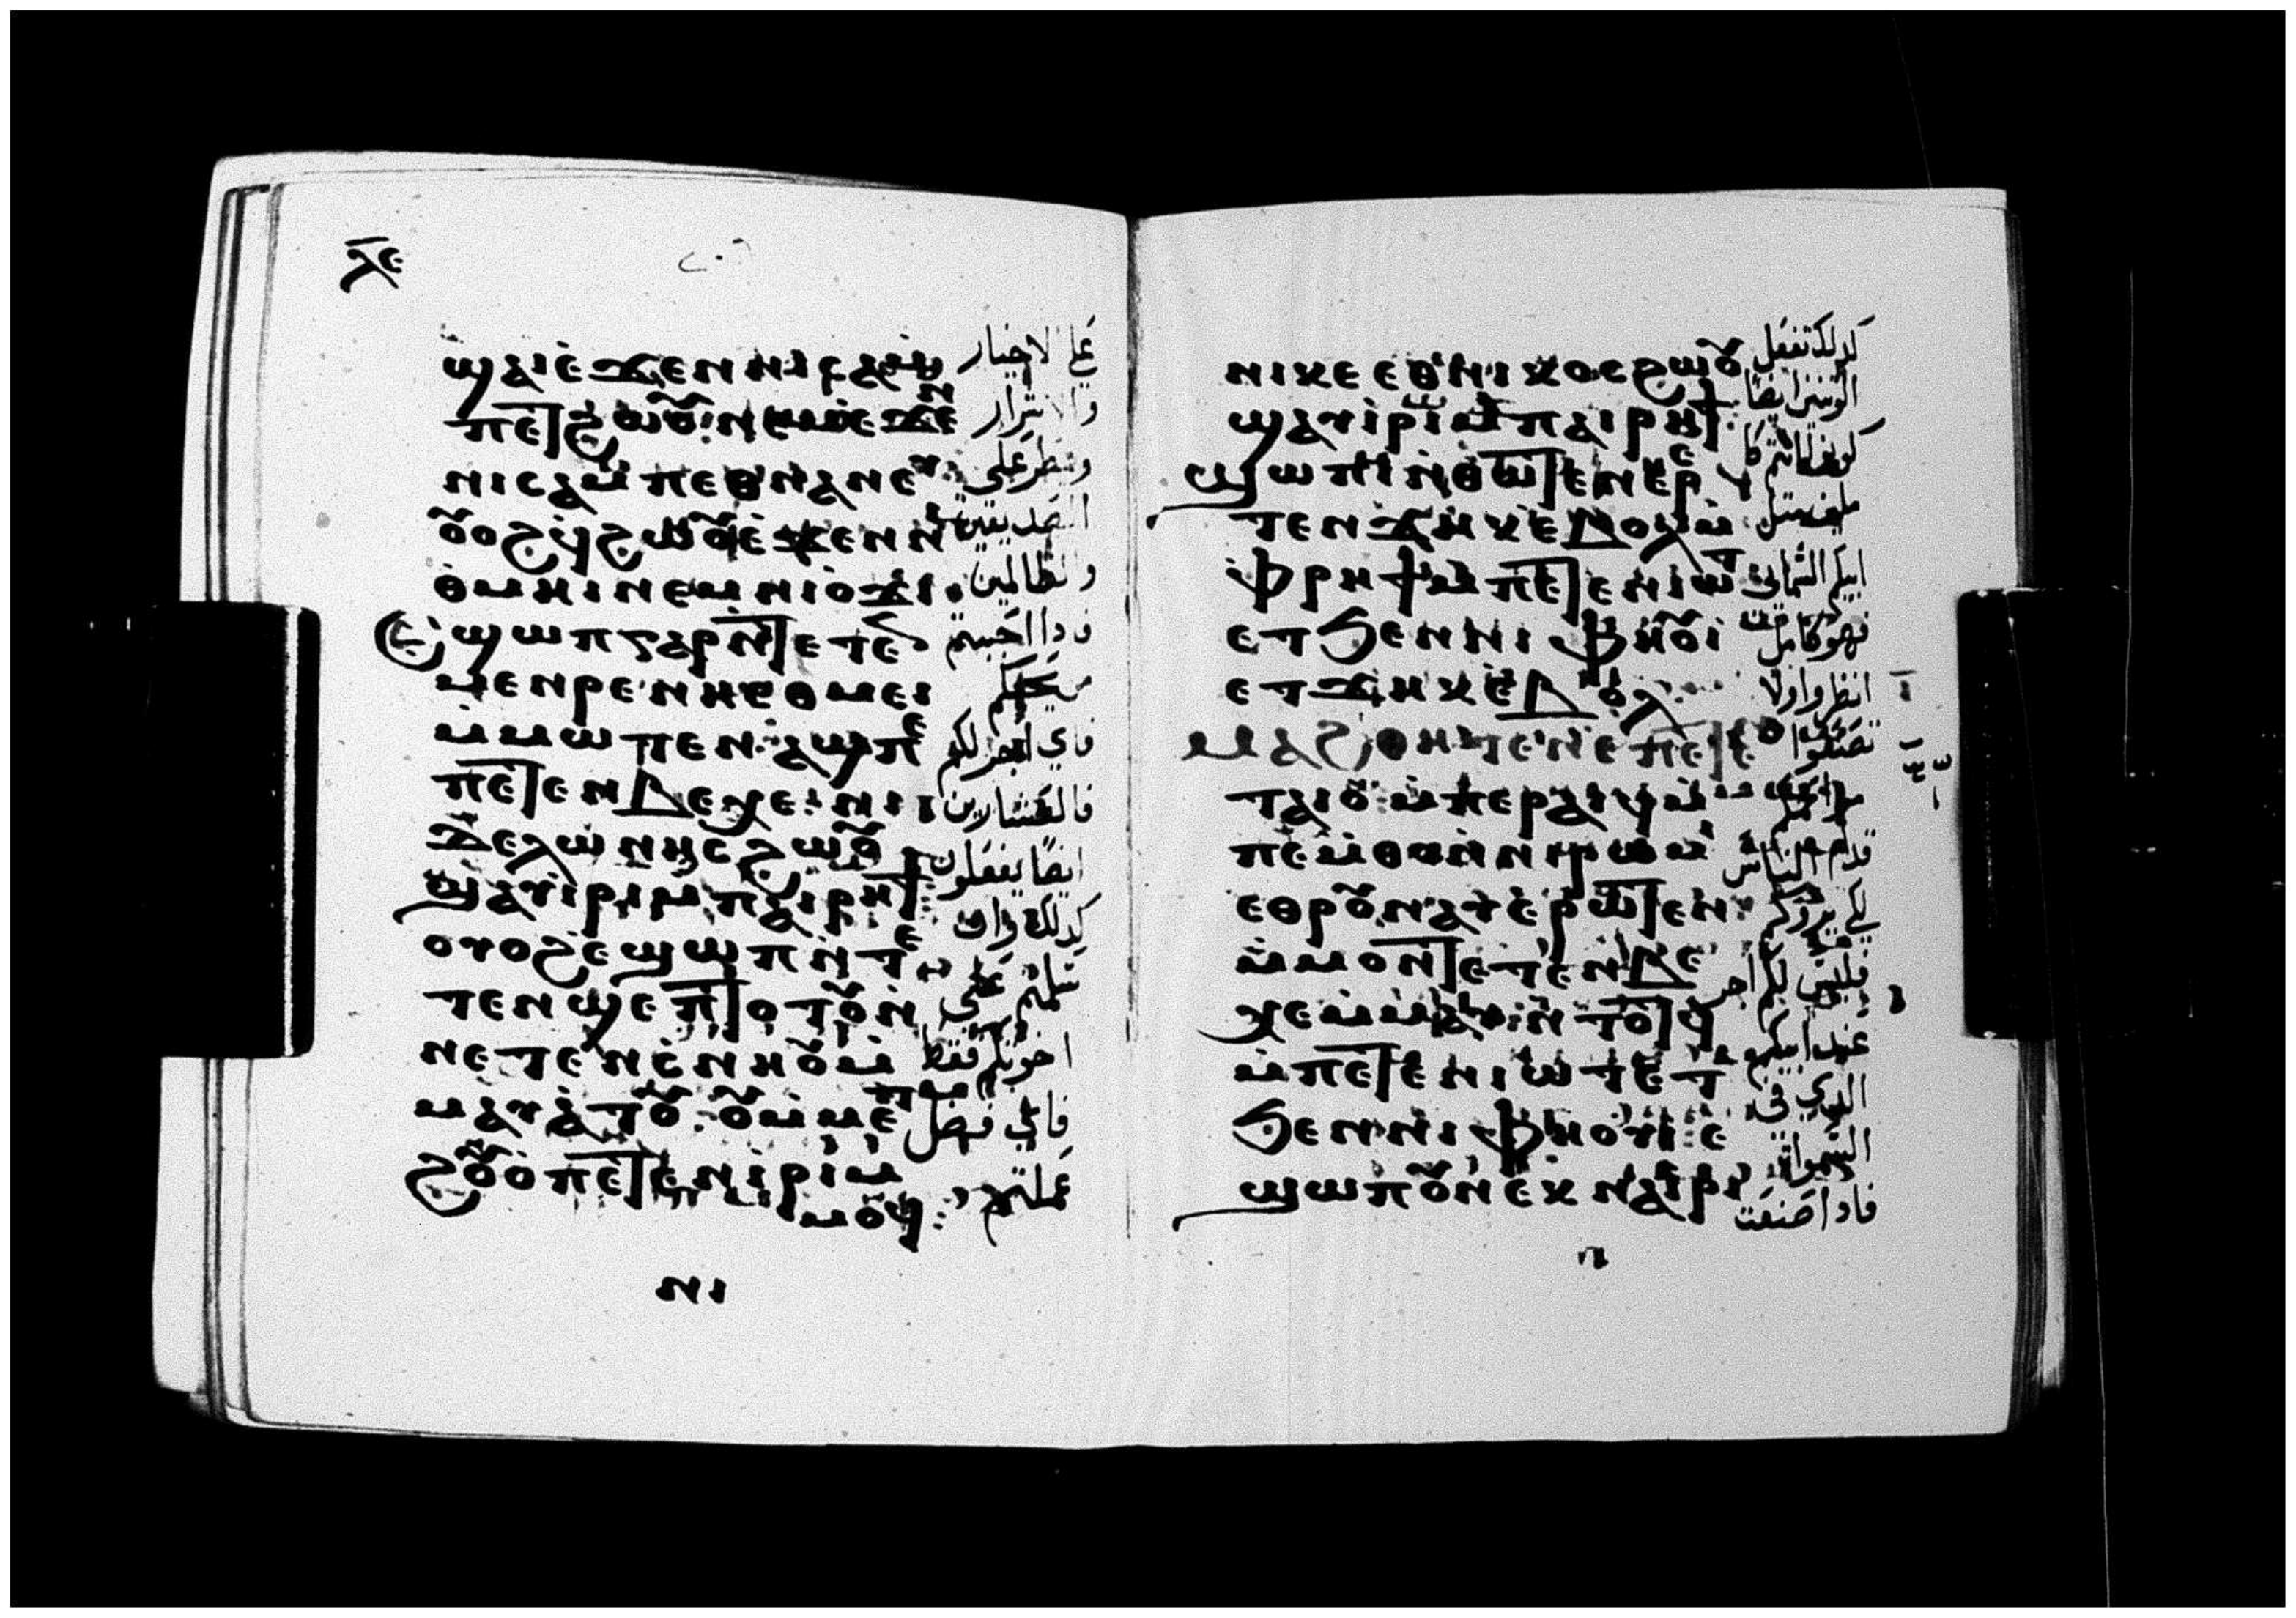 ϫⲉ
ϣⲁⲓⲉϫⲉⲛⲛⲓⲥⲁⲙ
ⲡⲉⲧϩⲱⲟⲩ: ⲛⲉⲙⲉϫⲉⲛ
ⲛⲓⲥⲁⲙⲡⲉⲑⲛⲁⲛⲉⲩ
ⲟⲩⲟϩϥϩⲱⲟⲩⲉϫⲉⲛⲛⲓ
ⲑⲙⲏⲓⲛⲉⲙⲛⲓⲟϫⲓ:
ⲉϣⲱⲡⲅⲁⲣⲛⲧⲉⲧⲉⲛ
ⲙⲉⲛⲣⲉⲛⲏⲉⲑⲙⲉⲓ
ⲙⲙⲱⲧⲉⲛ: ⲁϣⲡⲉ
ⲡⲉⲧⲉⲛⲃⲉⲭⲉ: ⲛⲓ
ⲧⲉⲗⲱⲛⲏⲥϩⲱⲟⲩ
ϣⲁⲩⲓⲣⲓⲙⲡⲁⲓⲣⲏϯ:
ⲟⲩⲟϩⲉϣⲱⲡⲛⲧⲉ
ⲧⲉⲛϣⲉⲡⲧⲟⲧⲟⲩⲛ
ⲛⲉⲧⲉⲛⲥⲛⲏⲟⲩⲙ
ⲙⲁⲩⲁⲧⲟⲩ: ⲟⲩⲙⲙⲉⲧ
ϩⲟⲩⲟⲡⲉⲧⲉⲧⲉⲛⲓⲣⲓⲙ
ⲙⲟϥ:
ⲛⲓ
على الاخيار
والاشرار
ويمطر على
الصديقين
والظالمين
فاذا احببتم
من يحبكم
فاي اجر لكم
فالعشارين
ايضا يفعلون
كذلك وان
سلمتم على
اخوتكم فقط
فاي فضل
عملتم
ⲛⲓⲕⲉⲉⲑⲛⲓⲕⲟⲥϩⲱⲟⲩ
ϣⲁⲩⲓⲣⲓⲙⲡⲁⲓⲣⲏϯ:
ϣⲱⲡⲓⲛⲑⲱⲧⲉⲛⲉⲣⲉ
ⲧⲉⲛϫⲏⲕⲉⲃⲟⲗ ⲙ
ⲫⲣⲏϯⲙⲡⲉⲧⲉⲛⲓⲱⲧ
ⲉⲧϧⲉⲛⲛⲓⲫⲏⲟⲩⲓ
ⲉⲧϫⲏⲕⲉⲃⲟⲗ:
ⲙⲁϩⲑⲏⲧⲉⲛⲉⲡⲉⲧⲉⲛ
ⲧⲁⲓⲟ ⲙⲡⲉⲣⲁⲓϥ ⲙ
ⲡⲉⲙⲑⲟⲛⲛⲓⲣⲱⲙⲓ
ⲉⲑⲣⲟⲩⲛⲁⲩⲉⲣⲱⲧⲉⲛ:
ⲙⲙⲟⲛⲧⲉⲧⲉⲛⲃⲉ
ⲭⲉⲙⲙⲁⲩⲛⲧⲟⲧϥ
ⲙⲡⲉⲧⲉⲛⲓⲱⲧⲉⲧ
ϧⲉⲛⲛⲓⲫⲏⲟⲩⲓ: ⲉ
ϣⲱⲡⲟⲩⲛⲉⲕⲛⲁⲓⲣⲓ
ⲛ
كذلك تفعل
كونوا انتم
مثل
ابيكم السمائي
فهو كامل
انظروا لا
تصنعوا
قدام الناس
فليس لكم اجر
عند ابيكم
الذي في
السموات
فاذا صنعت